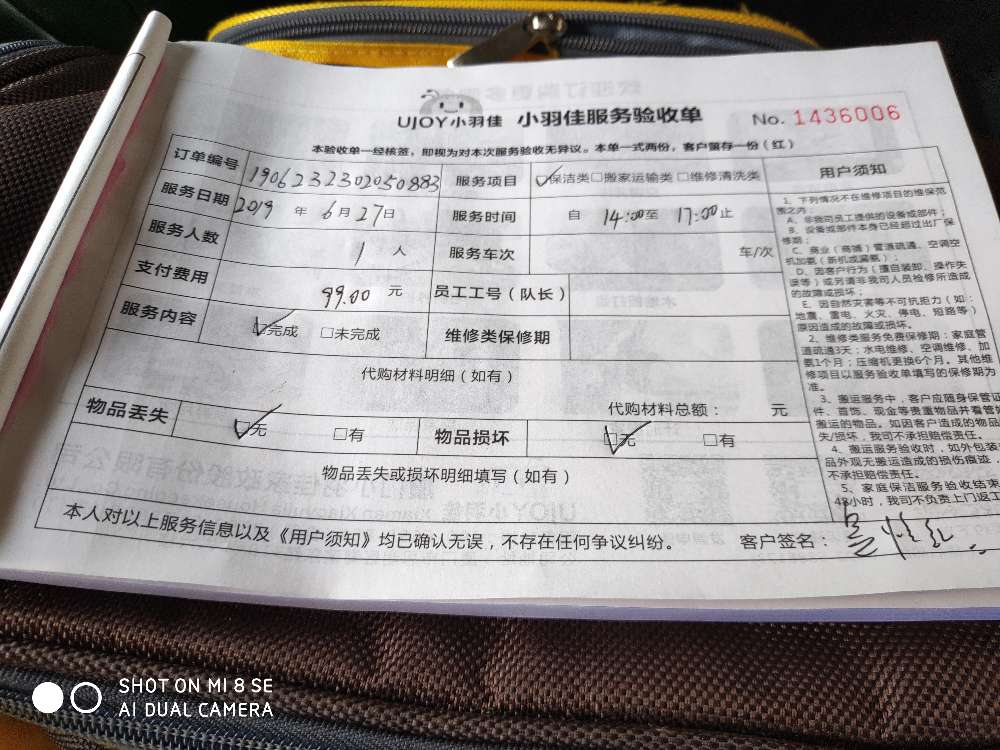 UJOY小羽佳 小羽佳服务验收单 No. 1436006
本验收单一经核签，即视为对本次服务验收无异议。本单一式两份，客户留存一份（红）
订单编号 1906232302050883 服务项目 ☑保洁类□搬家运输类□维修清洗类 用户须知
服务日期 2019 年 6月27日 服务时间 自 14:00至 17:00止
服务人数 1 人 服务车次 车/次
支付费用 99.00 元 员工工号（队长）
服务内容 ☑完成 □未完成 维修类保修期
代购材料明细（如有）
代购材料总额： 元
物品丢失 ☑无 □有 物品损坏 ☑无 □有
物品丢失或损坏明细填写（如有）
本人对以上服务信息以及《用户须知》均已确认无误，不存在任何争议纠纷。 客户签名：
1、下列情况不在维修项目的维保范
围之内：
A、非我司员工提供的设备或部件；
B、设备或部件本身已经超过出厂保
修期；
C、商业（商铺）管道疏通、空调空
机加氨（新机或漏氨）；
D、因客户行为（擅自装卸、操作失
误等）或另请非我司人员检修所造成
的故障或损坏；
E、因自然灾害等不可抗拒力（如：
地震、雷电、火灾、停电、短路等）
原因造成的故障或损坏。
2、维修类服务免费保修期：家庭管
道疏通3天；水电维修、空调维修、加
氨1个月；压缩机更换6个月。其他维
修项目以服务验收单填写的保修期为
准。
3、搬运服务中，客户应随身保管证
件、首饰、现金等贵重物品并看管
搬运的物品。如因客户造成的物品
失/损坏，我司不承担赔偿责任。
4、搬运服务验收时，如外包装
品外观无搬运造成的损伤痕迹，
不承担赔偿责任。
5、家庭保洁服务验收结束
48小时，我司不负责上门返工
SHOT ON MI 8 SE
AI DUAL CAMERA